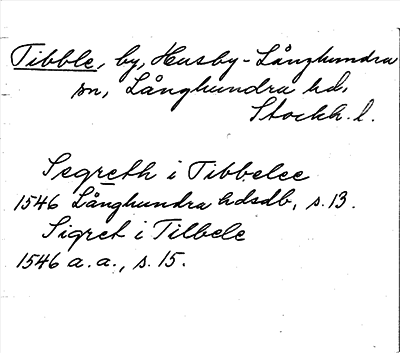 Tibble, by, Husby-Långhundra
sn, Långhundra hd,
Stockh. l.
Segreth i Tibbelee
1546 Långhundra hdsdb, s. 13.
Sigret i Tilbele
1546 a. a., s. 15.